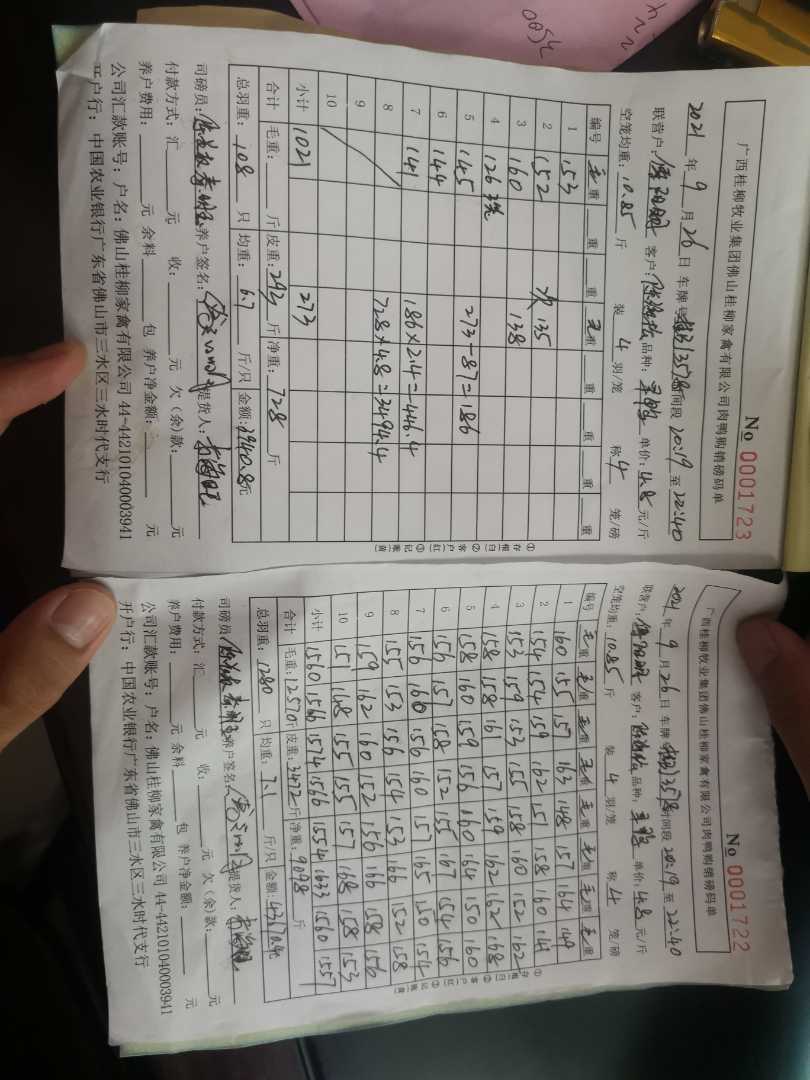 广西桂柳牧业集团佛山桂柳家禽有限公司肉鸭购销磅码单
No 0001723
2021 年 9 月 26 日 车牌号 时间段 20:19 至 22:40
联营户: 客户: 品种: 单价: 4.8 元/斤
空笼均重: 10.85 斤 装 4 羽/笼 称 4 笼/磅
编号 毛重 重 重 毛重 重 重 重 重
1 153
2 152 135
3 160 138
4 126 3只
5 145 273-87=186
6 144
7 141 186×2.4=446.4
8 728×4.8=3494.4
9
10
小计 1021 273
合计 毛重: 斤 皮重: 293 斤 净重: 728 斤
总羽重: 108 只 均重: 6.7 斤/只 金额: 2940.8元
司磅员: 养户签名: 提货人:
付款方式: 汇 元 收: 元 欠(余)款: 元
养户费用: 元 余料 包 养户净金额: 元
公司汇款账号: 户名: 佛山桂柳家禽有限公司 44-442101040003941
开户行: 中国农业银行广东省佛山市三水区三水时代支行
①存根(白) ②客户(红) ③记账(黄)
广西桂柳牧业集团佛山桂柳家禽有限公司肉鸭购销磅码单
No 0001722
2021 年 9 月 26 日 车牌 时间段 20:19 至 22:40
联营户: 客户: 品种: 单价: 4.8 元/斤
空笼均重: 10.85 斤 装 4 羽/笼 称 4 笼/磅
编号 毛重 毛重 毛重 毛重 毛重 毛重 毛重 毛重
1 160 155 157 163 148 157 164 149
2 154 154 159 162 151 158 160 141
3 153 159 153 155 158 160 152 162
4 158 158 161 157 159 162 162 168
5 158 160 159 156 160 164 150 160
6 156 157 158 152 155 167 154 156
7 156 160 156 160 157 165 150 154
8 155 153 156 154 153 166 152 158
9 159 162 160 152 156 166 158 156
10 151 148 155 155 157 168 158 153
小计 1560 1566 1574 1566 1554 1633 1560 1557
合计 毛重: 12570斤 皮重: 3472 斤 净重: 9098 斤
总羽重: 1280 只 均重: 7.1 斤/只 金额: 43670.4元
司磅员: 养户签名: 提货人:
付款方式: 汇 元 收: 元 欠(余)款: 元
养户费用: 元 余料 包 养户净金额: 元
公司汇款账号: 户名: 佛山桂柳家禽有限公司 44-442101040003941
开户行: 中国农业银行广东省佛山市三水区三水时代支行
①存根(白) ②客户(红) ③记账(黄)